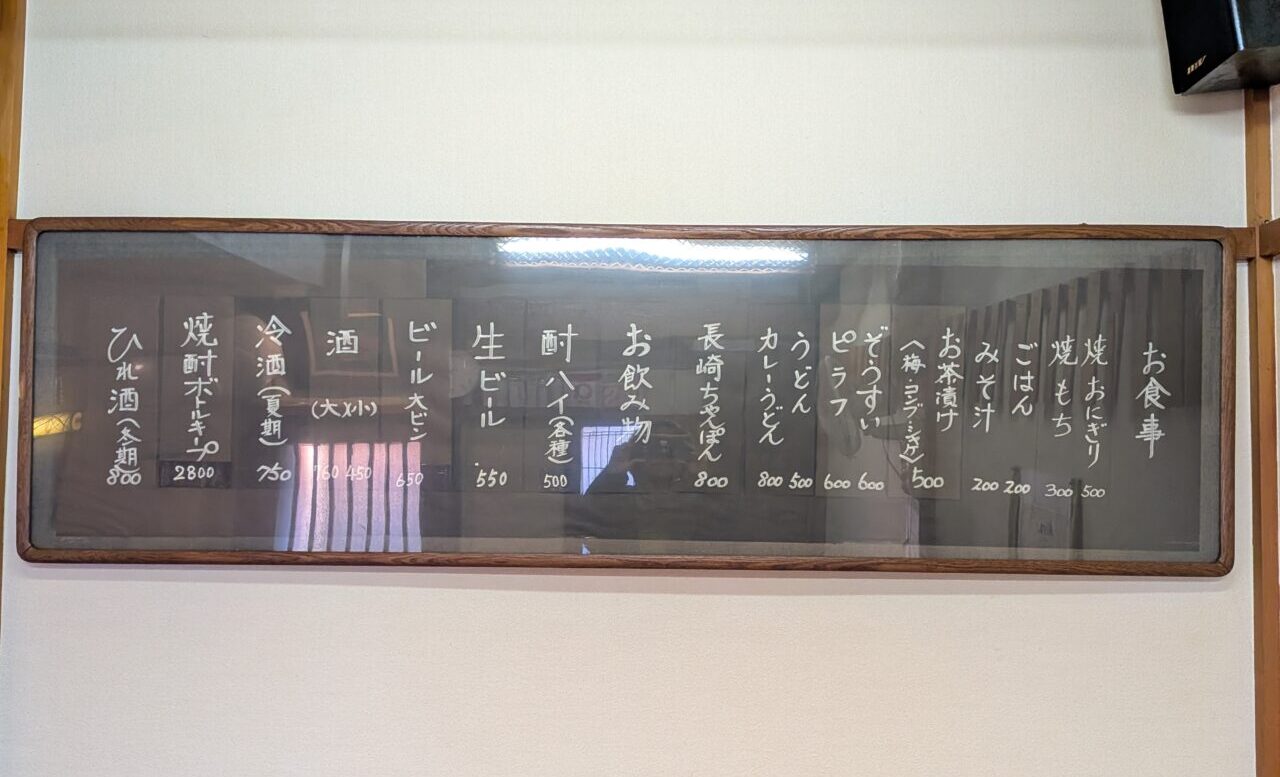 お食事
焼おにぎり 500
焼もち 300
ごはん 200
みそ汁 200
お茶漬け
(梅・コンブ・シャケ) 500
ぞうすい 600
ピラフ 600
うどん 500
カレーうどん 800
長崎ちゃんぽん 800
お飲み物
酎ハイ(各種) 500
生ビール 550
ビール大ビン 650
酒
(大)(小)
760 450
冷酒(夏期) 750
焼酎ボトルキープ 2800
ひれ酒(冬期) 800